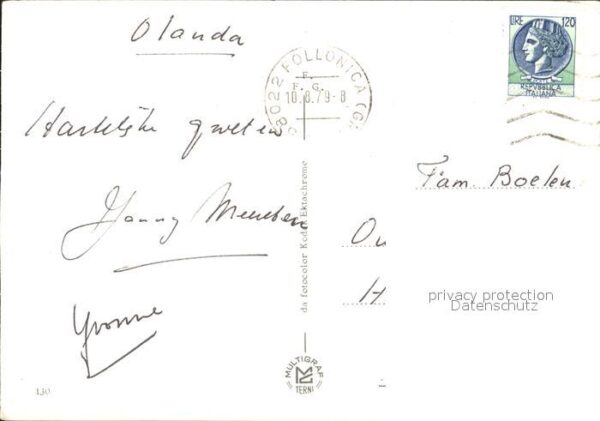 Olanda
LIRE 120
REPVBBLICA
ITALIANA
58022 FOLLONICA (GR
F.
F. G.
10.8.79-8
Hartelijke groeten
Fam. Boelen
Ou
H
Yvonne
da fotocolor Kodak Ektachrome
privacy protection
Datenschutz
MULTIGRAF
TERNI
130